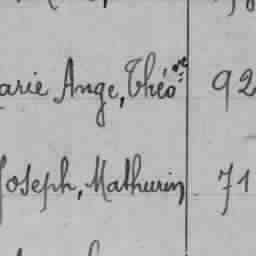 arie Ange, Théo re 92
Joseph, Mathurin 71